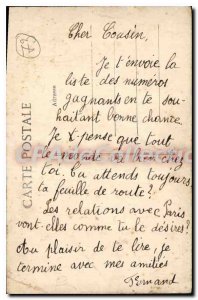 Cher Cousin,
Je t'envoie la
liste des numeros
gagnants en te sou-
haitant bonne chance.
Je pense que tout
le monde va bien chez
toi. Tu attends toujours
la feuille de route?
Les relations avec Paris
vont elles comme tu le désires?
Au plaisir de te lire, je
termine avec mes amitiés
Fernand
CARTE POSTALE
Adresse